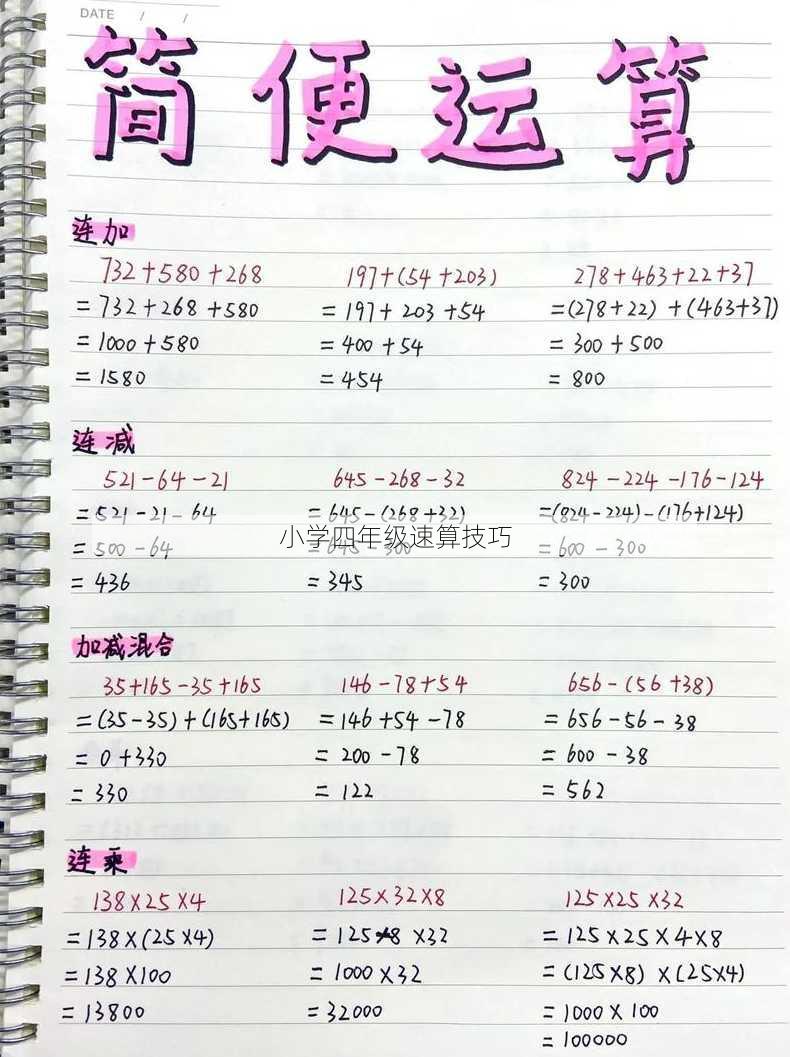 DATE / /
简便运算
连加
732+580+268
=732+268+580
=1000+580
=1580
197+(54+203)
=197+203+54
=400+54
=454
278+463+22+37
=(278+22)+(463+37)
=300+500
=800
连减
521-64-21
=521-21-64
=500-64
=436
645-268-32
=645-(268+32)
=645-300
=345
824-224-176-124
=(824-224)-(176+124)
=600-300
=300
小学四年级速算技巧
加减混合
35+165-35+165
=(35-35)+(165+165)
=0+330
=330
146-78+54
=146+54-78
=200-78
=122
656-(56+38)
=656-56-38
=600-38
=562
连乘
138×25×4
=138×(25×4)
=138×100
=13800
125×32×8
=125×8×32
=1000×32
=32000
125×25×32
=125×25×4×8
=(125×8)×(25×4)
=1000×100
=100000